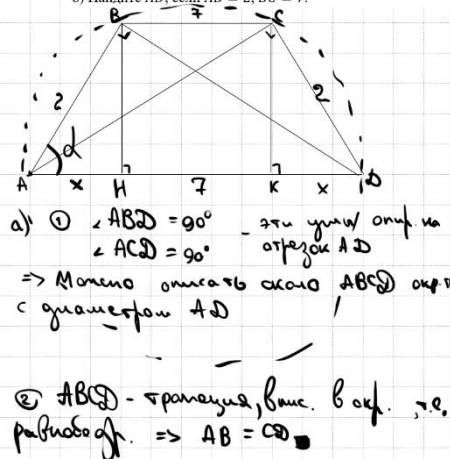 б) Найдите AD, если AB = 2, BC = 7.
B 7 C
2 2
α
A x H 7 K x D
а) ① ∠ABD = 90° - эти углы опир. на
∠ACD = 90° отрезок AD
=> Можно описать около ABCD окр.
с диаметром AD
② ABCD - трапеция, впис. в окр., т.е.
равнобедр. => AB = CD